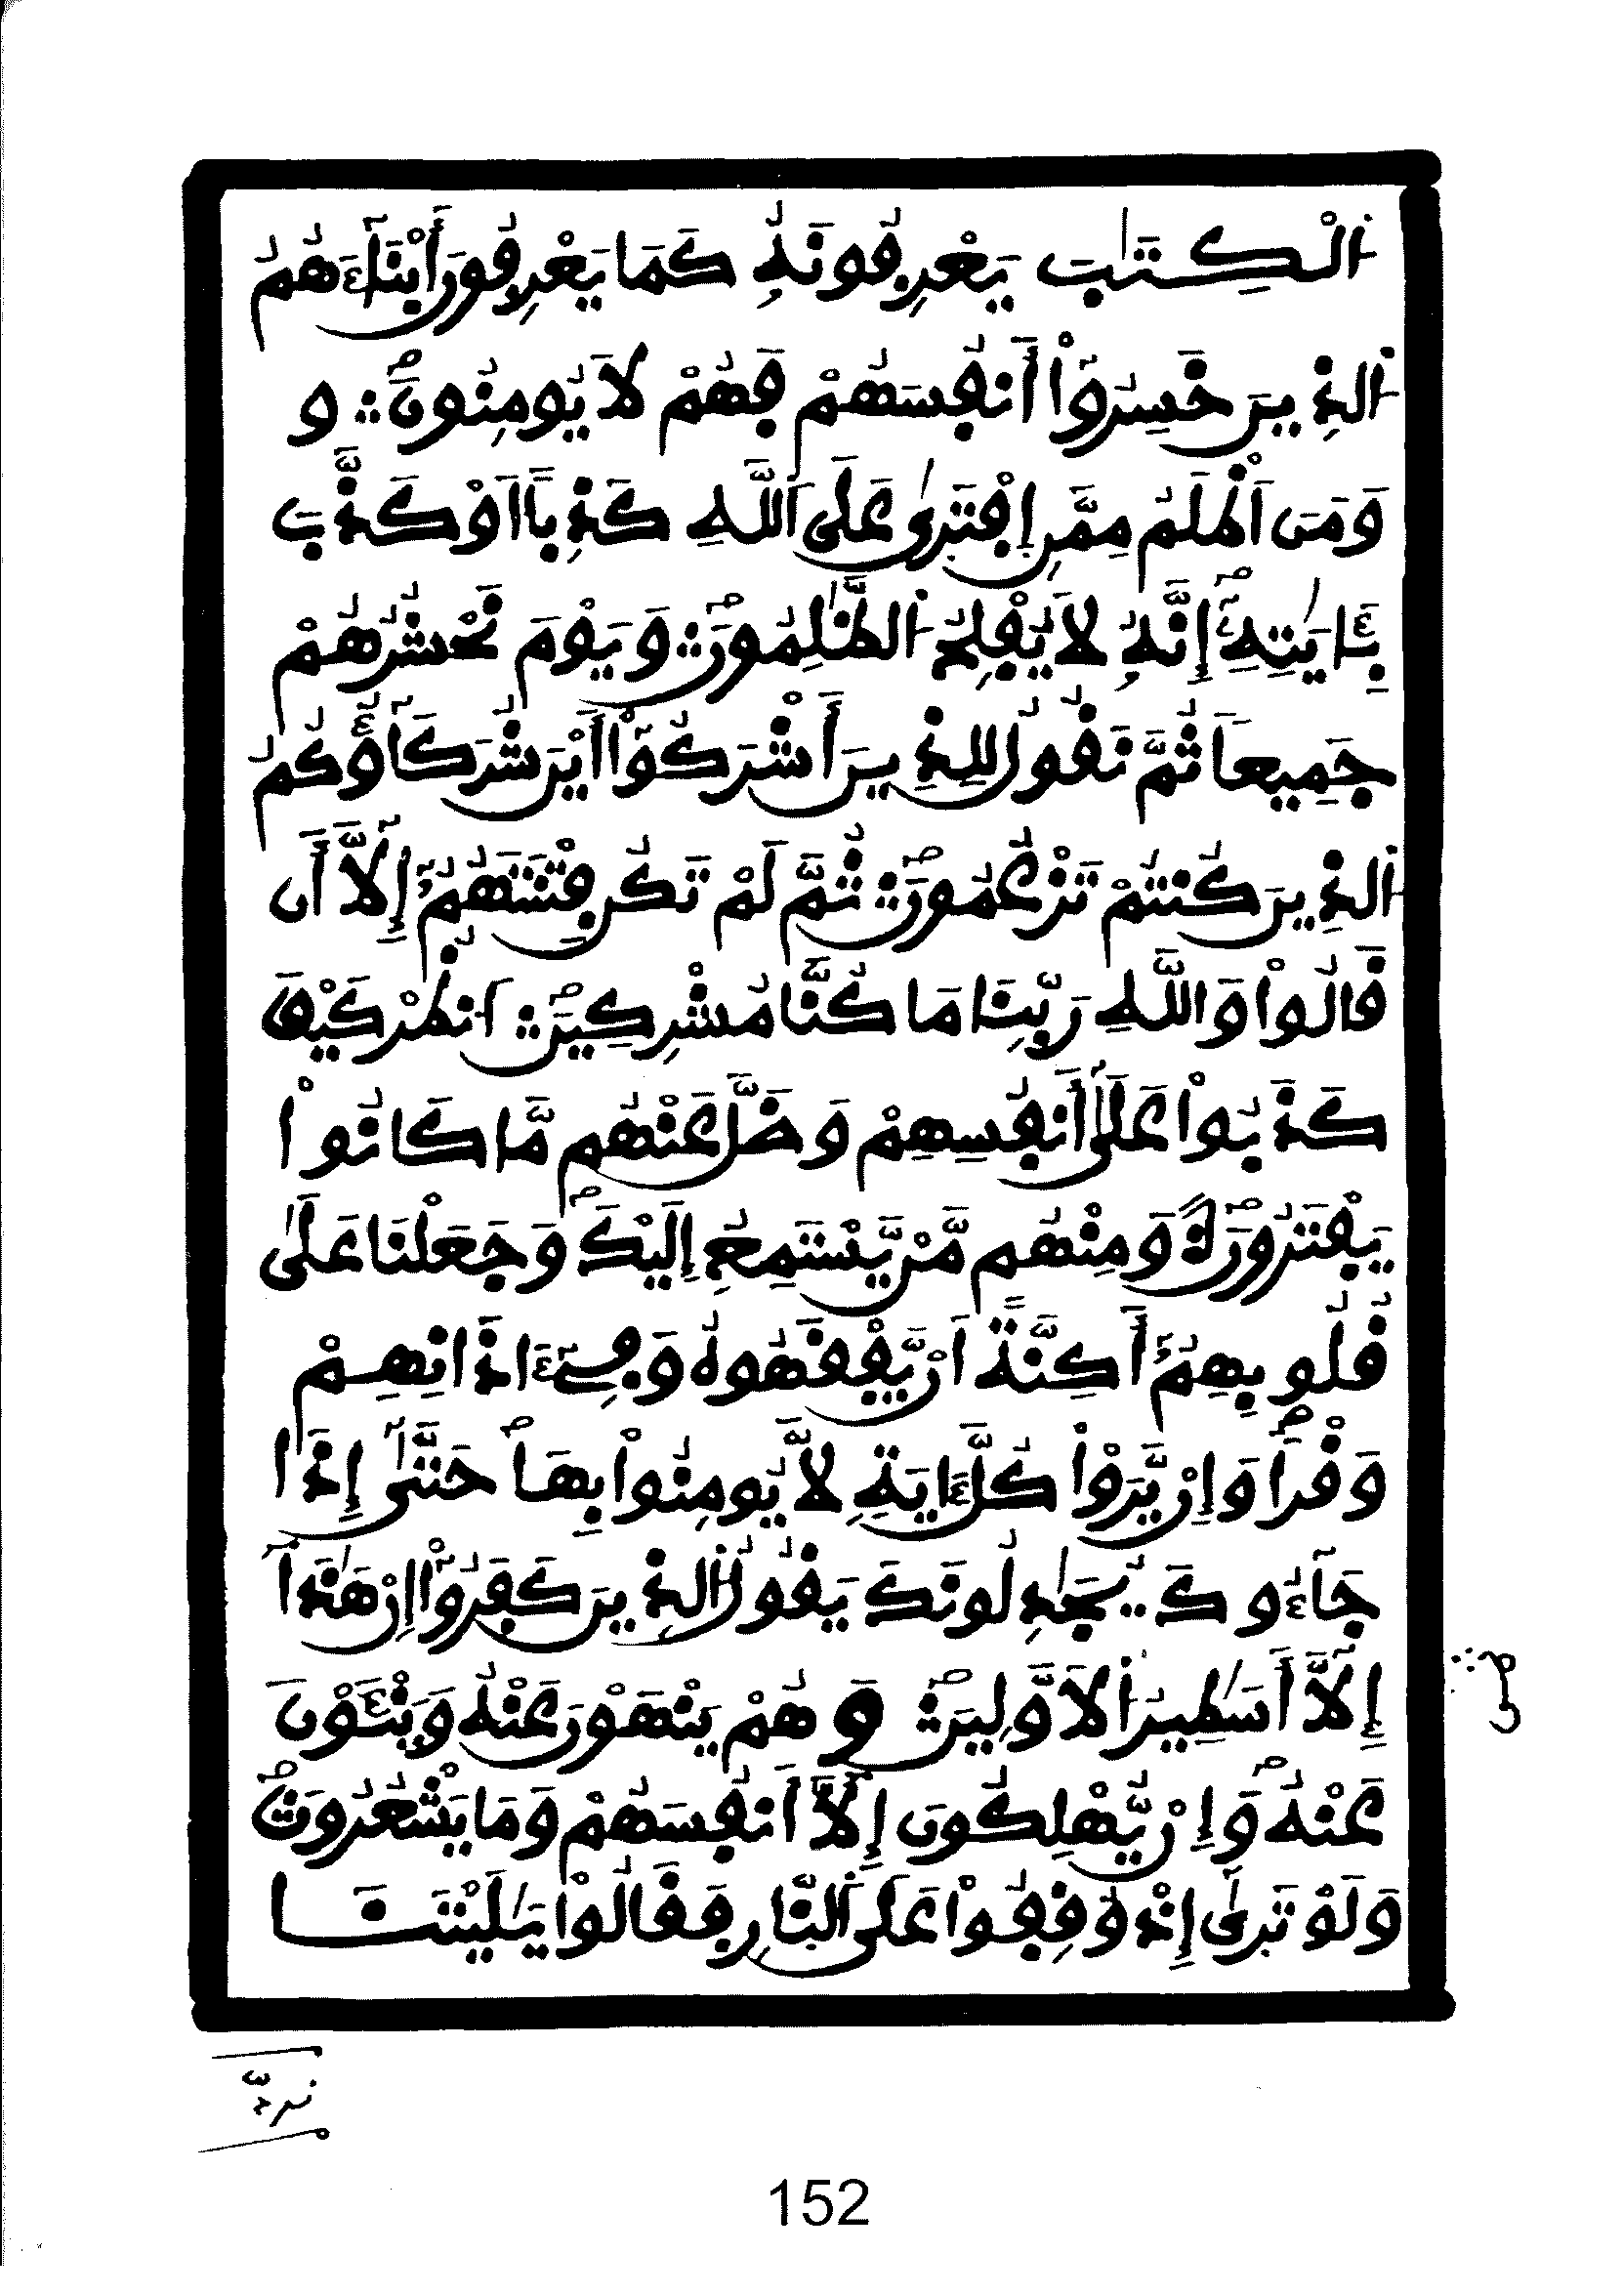 اَ۬لْكِتَٰبَ يَعْرِفُونَهُۥ كَمَا يَعْرِفُونَ أَبْنَآءَهُمُ
اُ۬لذِينَ خَسِرُوٓاْ أَنفُسَهُمْ فَهُمْ لَا يُومِنُونَۖ ۞ و
وَمَنَ اَظْلَمُ مِمَّنِ اِ۪فْتَر۪ىٰ عَلَى اَ۬للَّهِ كَذِباً اَوْ كَذَّبَ
بِـَٔايَٰتِهِۦٓۖ إِنَّهُۥ لَا يُفْلِحُ اُ۬لظَّٰلِمُونَۖ ۞ وَيَوْمَ نَحْشُرُهُمْ
جَمِيعاً ثُمَّ نَقُولُ لِلذِينَ أَشْرَكُوٓاْ أَيْنَ شُرَكَآؤُكُمُ
اُ۬لذِينَ كُنتُمْ تَزْعُمُونَۖ ۞ ثُمَّ لَمْ تَكُن فِتْنَتَهُمُۥٓ إِلَّآ أَن
قَالُواْ وَاللَّهِ رَبِّنَا مَا كُنَّا مُشْرِكِينَۖ ۞ اَ۟نظُرْ كَيْفَ
كَذَبُواْ عَلَىٰٓ أَنفُسِهِمْ وَضَلَّ عَنْهُم مَّا كَانُواْ
يَفْتَرُونَۖ وَمِنْهُم مَّنْ يَّسْتَمِعُ إِلَيْكَۖ وَجَعَلْنَا عَلَىٰ
قُلُوبِهِمُۥٓ أَكِنَّةً اَنْ يَّفْقَهُوهُ وَفِےٓ ءَاذَانِهِمْ
وَقْراًۖ وَإِنْ يَّرَوْاْ كُلَّ ءَايَةٍ لَّا يُومِنُواْ بِهَاۖ حَتَّىٰٓ إِذَا
جَآءُوكَ يُجَٰدِلُونَكَ يَقُولُ اُ۬لذِينَ كَفَرُوٓاْ إِنْ هَٰذَآ
إِلَّآ أَسَٰطِيرُ اُ۬لَاوَّلِينَۖ ۞ وَهُمْ يَنْهَوْنَ عَنْهُ وَيَنْـَٔوْنَ
عَنْهُۖ وَإِنْ يُّهْلِكُونَ إِلَّآ أَنفُسَهُمْ وَمَا يَشْعُرُونَۖ
وَلَوْ تَر۪ىٰٓ إِذْ وُقِفُواْ عَلَى اَ۬لنّ۪ارِ فَقَالُواْ يَٰلَيْتَنَا
152